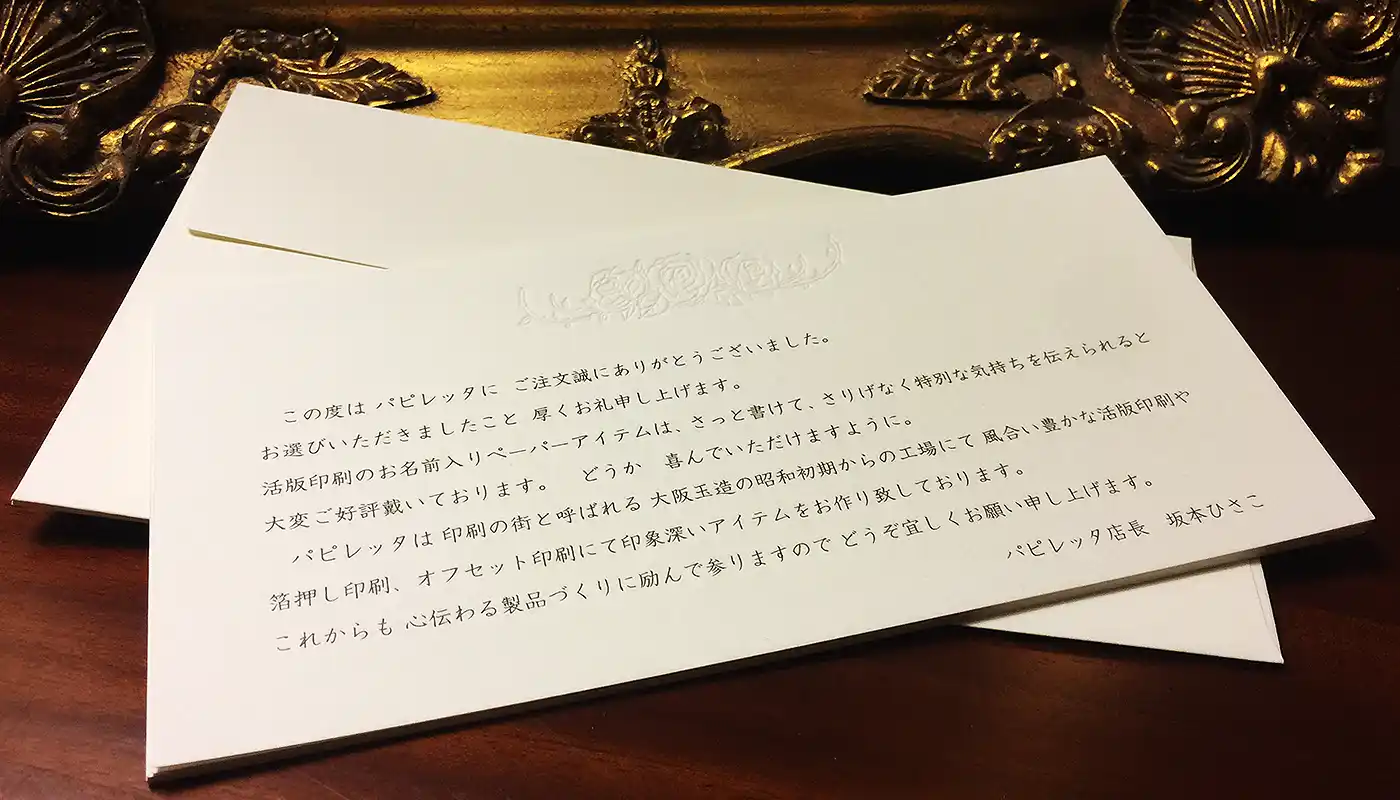 この度は パピレッタに ご注文誠にありがとうございました。
お選びいただきましたこと 厚くお礼申し上げます。
活版印刷のお名前入りペーパーアイテムは、さっと書けて、さりげなく特別な気持ちを伝えられると
大変ご好評戴いております。 どうか 喜んでいただけますように。
パピレッタは 印刷の街と呼ばれる 大阪玉造の昭和初期からの工場にて 風合い豊かな活版印刷や
箔押し印刷、オフセット印刷にて印象深いアイテムをお作り致しております。
これからも 心伝わる製品づくりに励んで参りますので どうぞ宜しくお願い申し上げます。
パピレッタ店長 坂本ひさこ